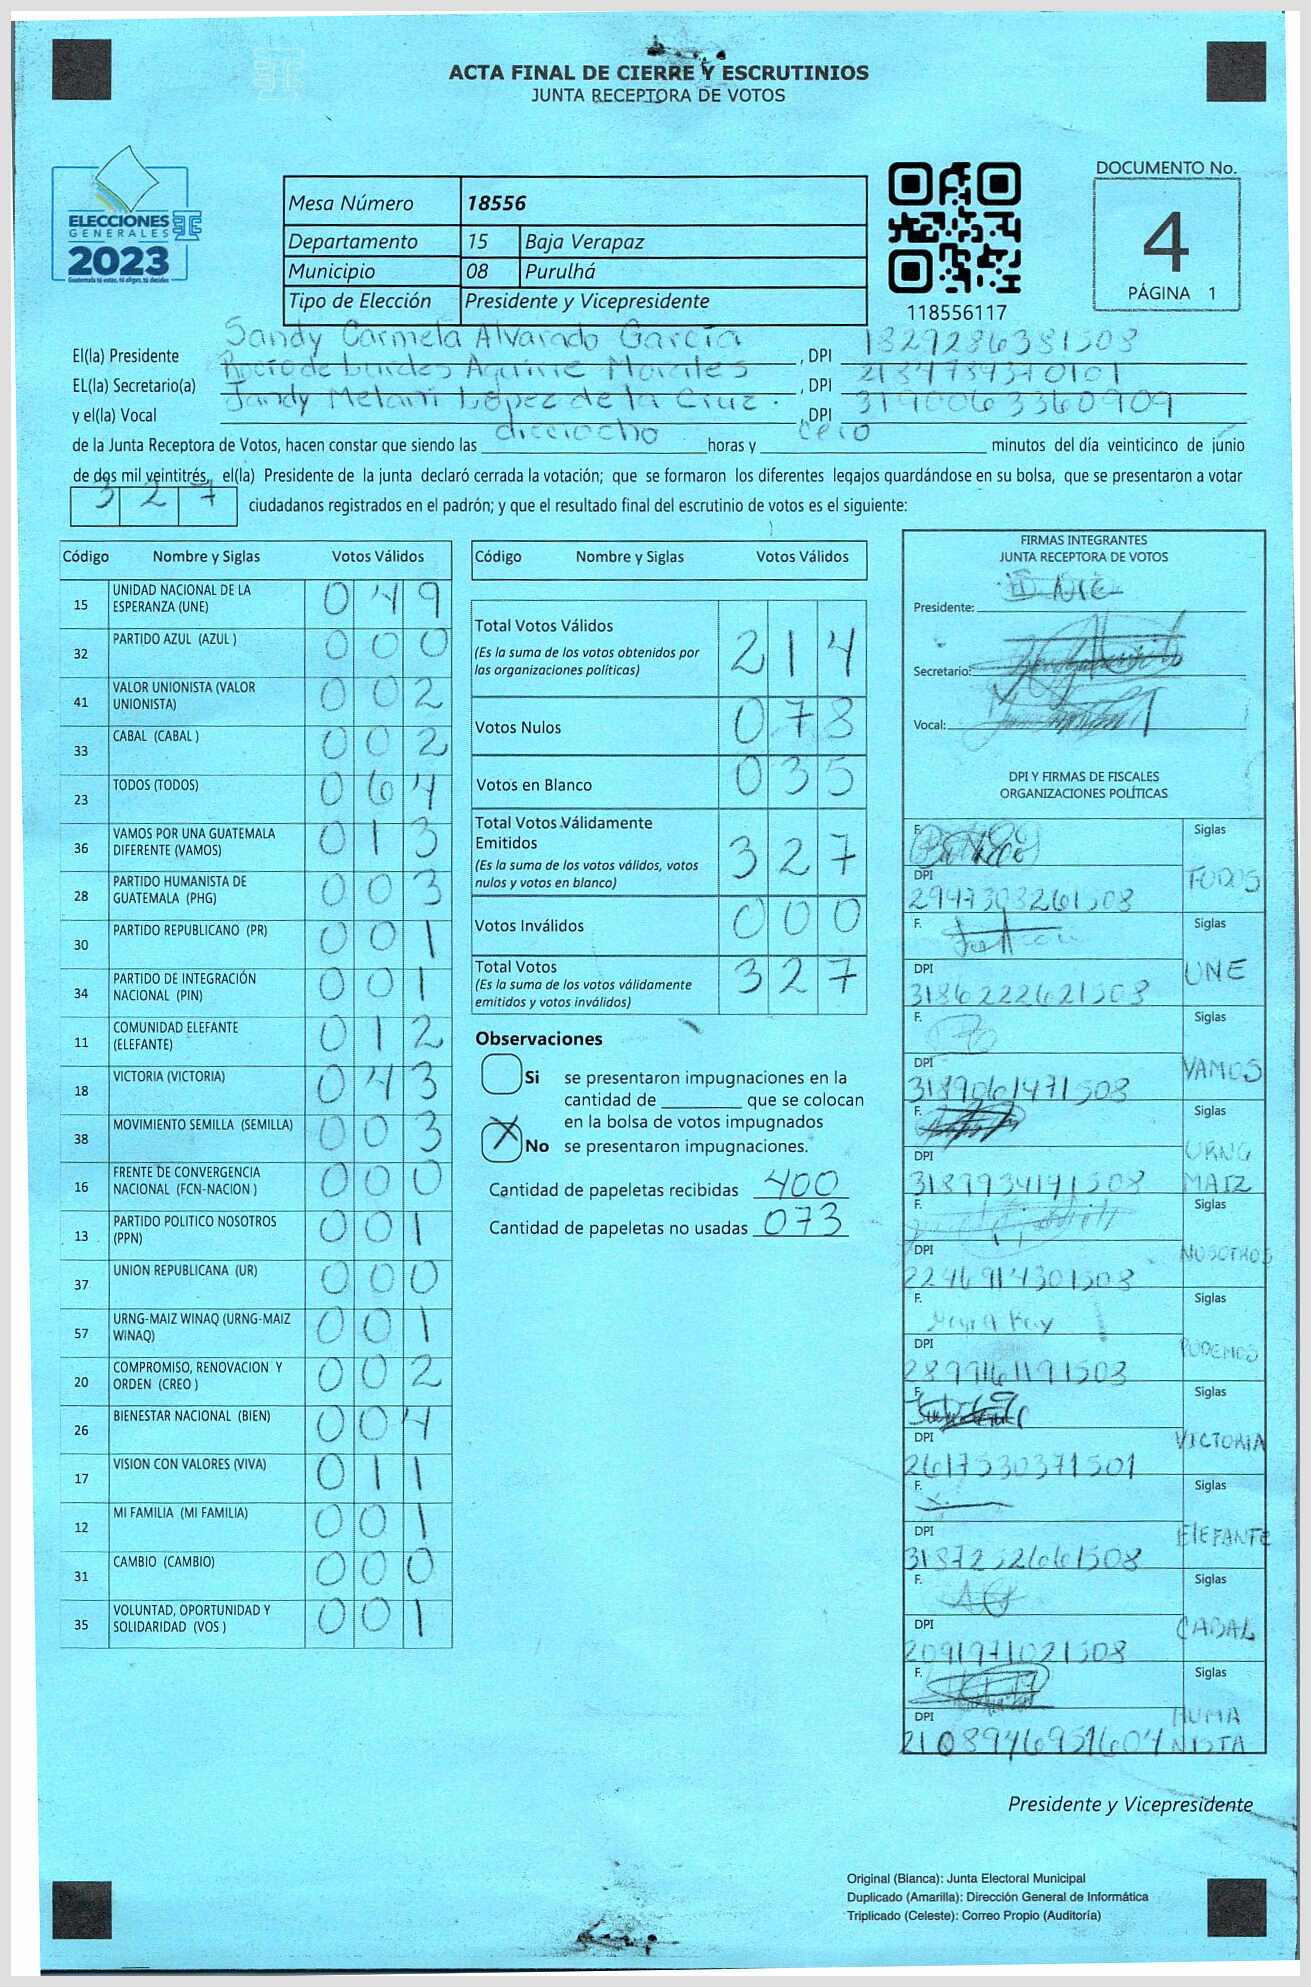 ACTA FINAL DE CIERRE Y ESCRUTINIOS
JUNTA RECEPTORA DE VOTOS
ELECCIONES
GENERALES
2023
Guatemala tú votas, tú eliges, tú decides
Mesa Número 18556
Departamento 15 Baja Verapaz
Municipio 08 Purulhá
Tipo de Elección Presidente y Vicepresidente
118556117
DOCUMENTO No.
4
PÁGINA 1
El(la) Presidente Sandy Carmela Alvarado García, DPI 1829286381508
EL(la) Secretario(a) Rocio de Lurdes Aguirre Morales, DPI 2184784370101
y el(la) Vocal Jandy Melani López de la Cruz., DPI 3190063360909
de la Junta Receptora de Votos, hacen constar que siendo las dieciocho horas y cero minutos del día veinticinco de junio
de dos mil veintitrés, el(la) Presidente de la junta declaró cerrada la votación; que se formaron los diferentes legajos guardándose en su bolsa, que se presentaron a votar
327 ciudadanos registrados en el padrón; y que el resultado final del escrutinio de votos es el siguiente:
Código Nombre y Siglas Votos Válidos
15 UNIDAD NACIONAL DE LA ESPERANZA (UNE) 049
32 PARTIDO AZUL (AZUL ) 000
41 VALOR UNIONISTA (VALOR UNIONISTA) 002
33 CABAL (CABAL ) 002
23 TODOS (TODOS) 064
36 VAMOS POR UNA GUATEMALA DIFERENTE (VAMOS) 013
28 PARTIDO HUMANISTA DE GUATEMALA (PHG) 003
30 PARTIDO REPUBLICANO (PR) 001
34 PARTIDO DE INTEGRACIÓN NACIONAL (PIN) 001
11 COMUNIDAD ELEFANTE (ELEFANTE) 012
18 VICTORIA (VICTORIA) 043
38 MOVIMIENTO SEMILLA (SEMILLA) 003
16 FRENTE DE CONVERGENCIA NACIONAL (FCN-NACION ) 000
13 PARTIDO POLITICO NOSOTROS (PPN) 001
37 UNION REPUBLICANA (UR) 000
57 URNG-MAIZ WINAQ (URNG-MAIZ WINAQ) 001
20 COMPROMISO, RENOVACION Y ORDEN (CREO ) 002
26 BIENESTAR NACIONAL (BIEN) 004
17 VISION CON VALORES (VIVA) 011
12 MI FAMILIA (MI FAMILIA) 001
31 CAMBIO (CAMBIO) 000
35 VOLUNTAD, OPORTUNIDAD Y SOLIDARIDAD (VOS ) 001
Código Nombre y Siglas Votos Válidos
Total Votos Válidos 214
(Es la suma de los votos obtenidos por
las organizaciones políticas)
Votos Nulos 078
Votos en Blanco 035
Total Votos Válidamente
Emitidos 327
(Es la suma de los votos válidos, votos
nulos y votos en blanco)
Votos Inválidos 000
Total Votos 327
(Es la suma de los votos válidamente
emitidos y votos inválidos)
Observaciones
Si se presentaron impugnaciones en la
cantidad de ________ que se colocan
en la bolsa de votos impugnados
X No se presentaron impugnaciones.
Cantidad de papeletas recibidas 400
Cantidad de papeletas no usadas 073
FIRMAS INTEGRANTES
JUNTA RECEPTORA DE VOTOS
Presidente:
Secretario:
Vocal:
DPI Y FIRMAS DE FISCALES
ORGANIZACIONES POLÍTICAS
F. Siglas
DPI TODOS
2947308261508
F. Siglas
DPI UNE
3186222621508
F. Siglas
DPI VAMOS
3189061471508
F. Siglas
DPI URNG MAIZ
3189934141508
F. Siglas
DPI NOSOTROS
2246914301508
F. Siglas
DPI PODEMOS
2899161191503
F. Siglas
DPI VICTORIA
2617530371501
F. Siglas
DPI ElEFANTE
3187252661508
F. Siglas
DPI CABAL
2091971021508
F. Siglas
DPI HUMANISTA
2108946951604
Presidente y Vicepresidente
Original (Blanca): Junta Electoral Municipal
Duplicado (Amarilla): Dirección General de Informática
Triplicado (Celeste): Correo Propio (Auditoría)